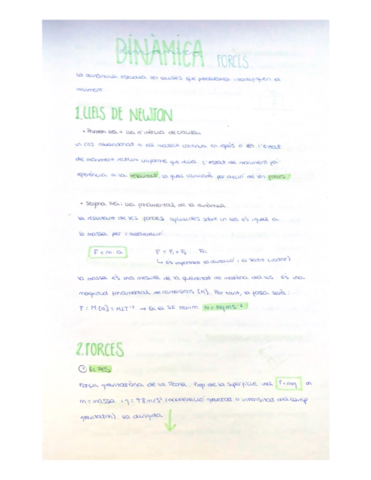 DINÀMICA FORCES
La dinàmica estudia les causes que produeixen i modifiquen el
moviment.
1. LLEIS DE NEWTON
• Primera llei: Llei d'inèrcia de Galileu
un cos abandonat a ell mateix continua en repòs o en l'estat
de moviment rectilini uniforme que duia. L'estat de moviment
referència a la velocitat, la qual canviarà per acció de les forces.
• Segona llei: Llei fonamental de la dinàmica
La resultant de les forces aplicades sobre un cos és igual a
la massa per l'acceleració
F = m·a F = F₁ + F₂
la direcció i el sentit (vector)
La massa és una mesura de la quantitat de matèria del cos. És una
magnitud fonamental de dimensions [M]. Per tant, la força serà:
F: M·[a] = MLT⁻² → En el SI tenim N = kg m s⁻²
2. FORCES
① EL PES
Força gravitatòria de la Terra. Prop de la superfície val P = mg on
m = massa i g = 9'8 m/s² (acceleració gravetat o intensitat del camp
gravitatori). Va dirigida ↓